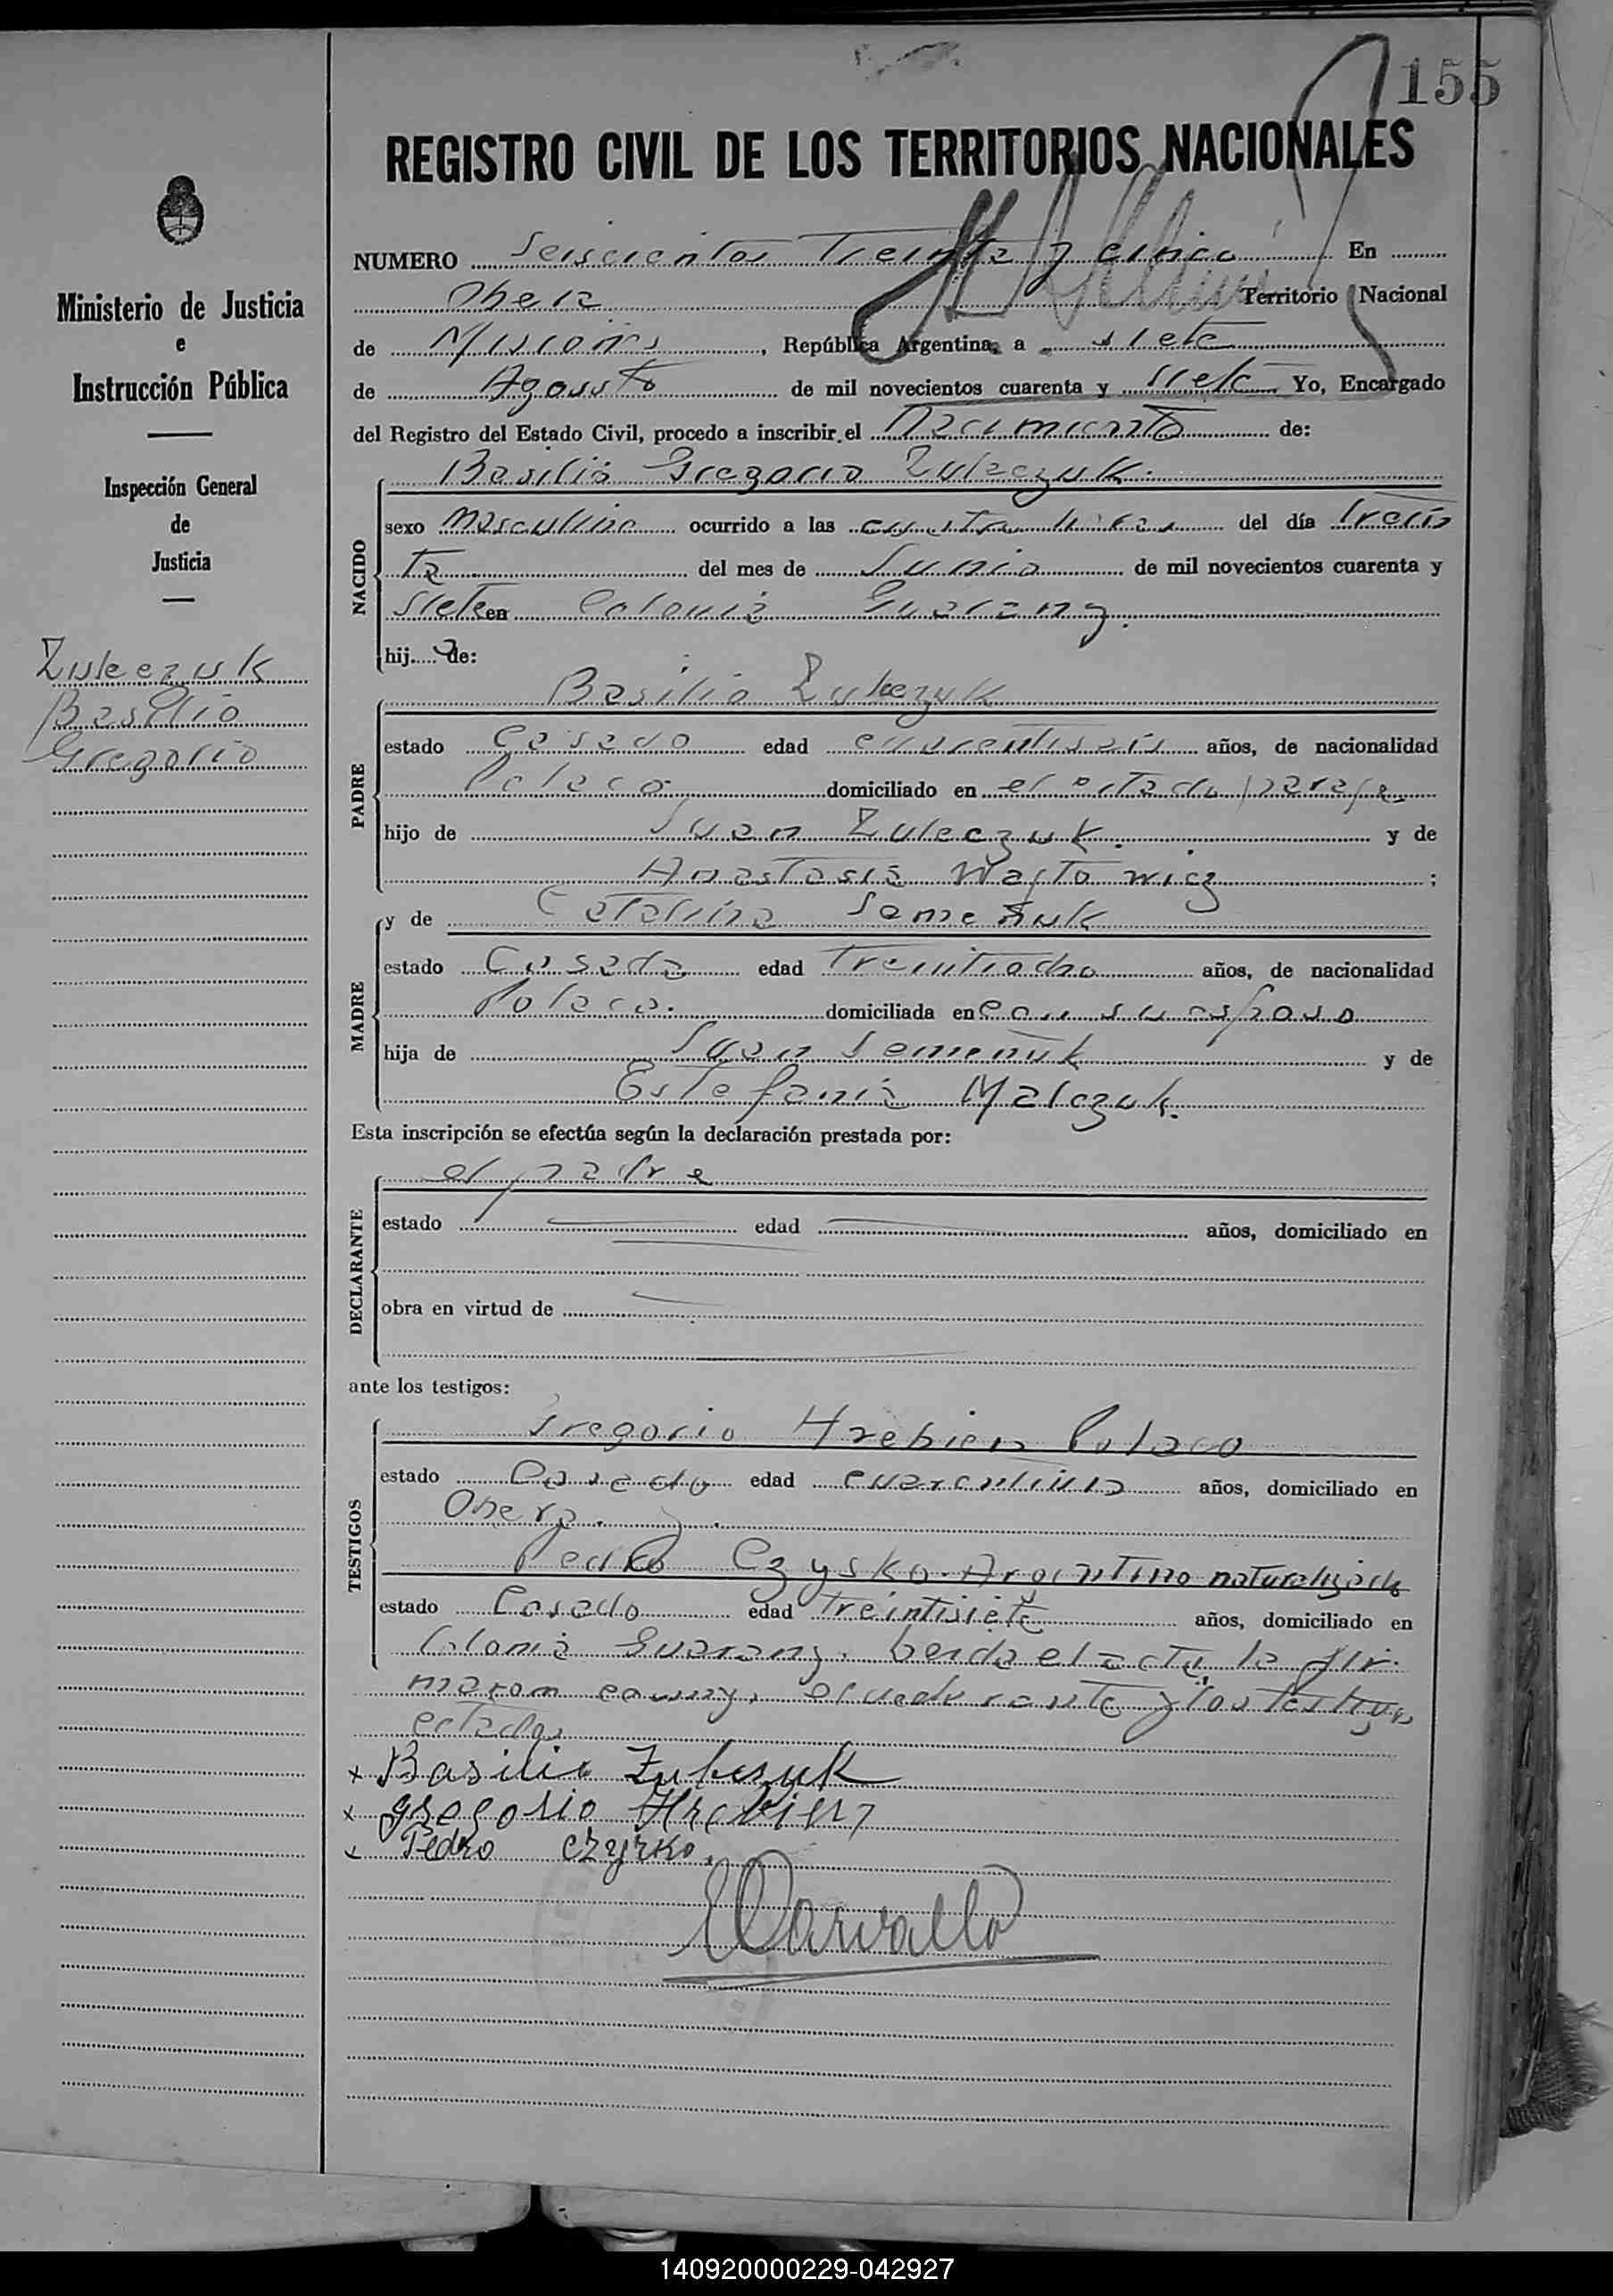 155
REGISTRO CIVIL DE LOS TERRITORIOS NACIONALES
Ministerio de Justicia
e
Instrucción Pública
Inspección General
de
Justicia
Zuleczuk
Basilio
Gregorio
NUMERO Seiscientos Treinta y cinco En
Obera Territorio Nacional
de Misiones, República Argentina, a siete
de Agosto de mil novecientos cuarenta y siete Yo, Encargado
del Registro del Estado Civil, procedo a inscribir el Nacimiento de:
NACIDO
Basilio Gregorio Zuleczuk
sexo Masculino ocurrido a las cuatro horas del día trein
ta del mes de Junio de mil novecientos cuarenta y
siete en Colonia Guarany.
hijo de:
PADRE
Basilio Zuleczuk
estado Casado edad cuarentiseis años, de nacionalidad
Polaca domiciliado en el citado paraje
hijo de Juan Zuleczuk y de
Anastasia Wajtowicz ;
MADRE
y de Catalina Semeñuk
estado Casada edad Treintiocho años, de nacionalidad
Polaca. domiciliada en con su esposo
hija de Juan Semeñuk y de
Estefania Malczuk.
Esta inscripción se efectúa según la declaración prestada por:
DECLARANTE
el padre
estado edad años, domiciliado en
obra en virtud de
ante los testigos:
TESTIGOS
Gregorio Hrebien Polaco
estado Casado edad cuarentiuno años, domiciliado en
Obera. y.
Pedro Czysko. Argentino naturalizado
estado Casado edad treintisiete años, domiciliado en
Colonia Guarany. Leida el acta la fir
maron conmigo el y los testigos
citados
x Basilio Zuleczuk
x Gregorio Hrebien
x Pedro Czysko.
Carvallo
140920000229-042927